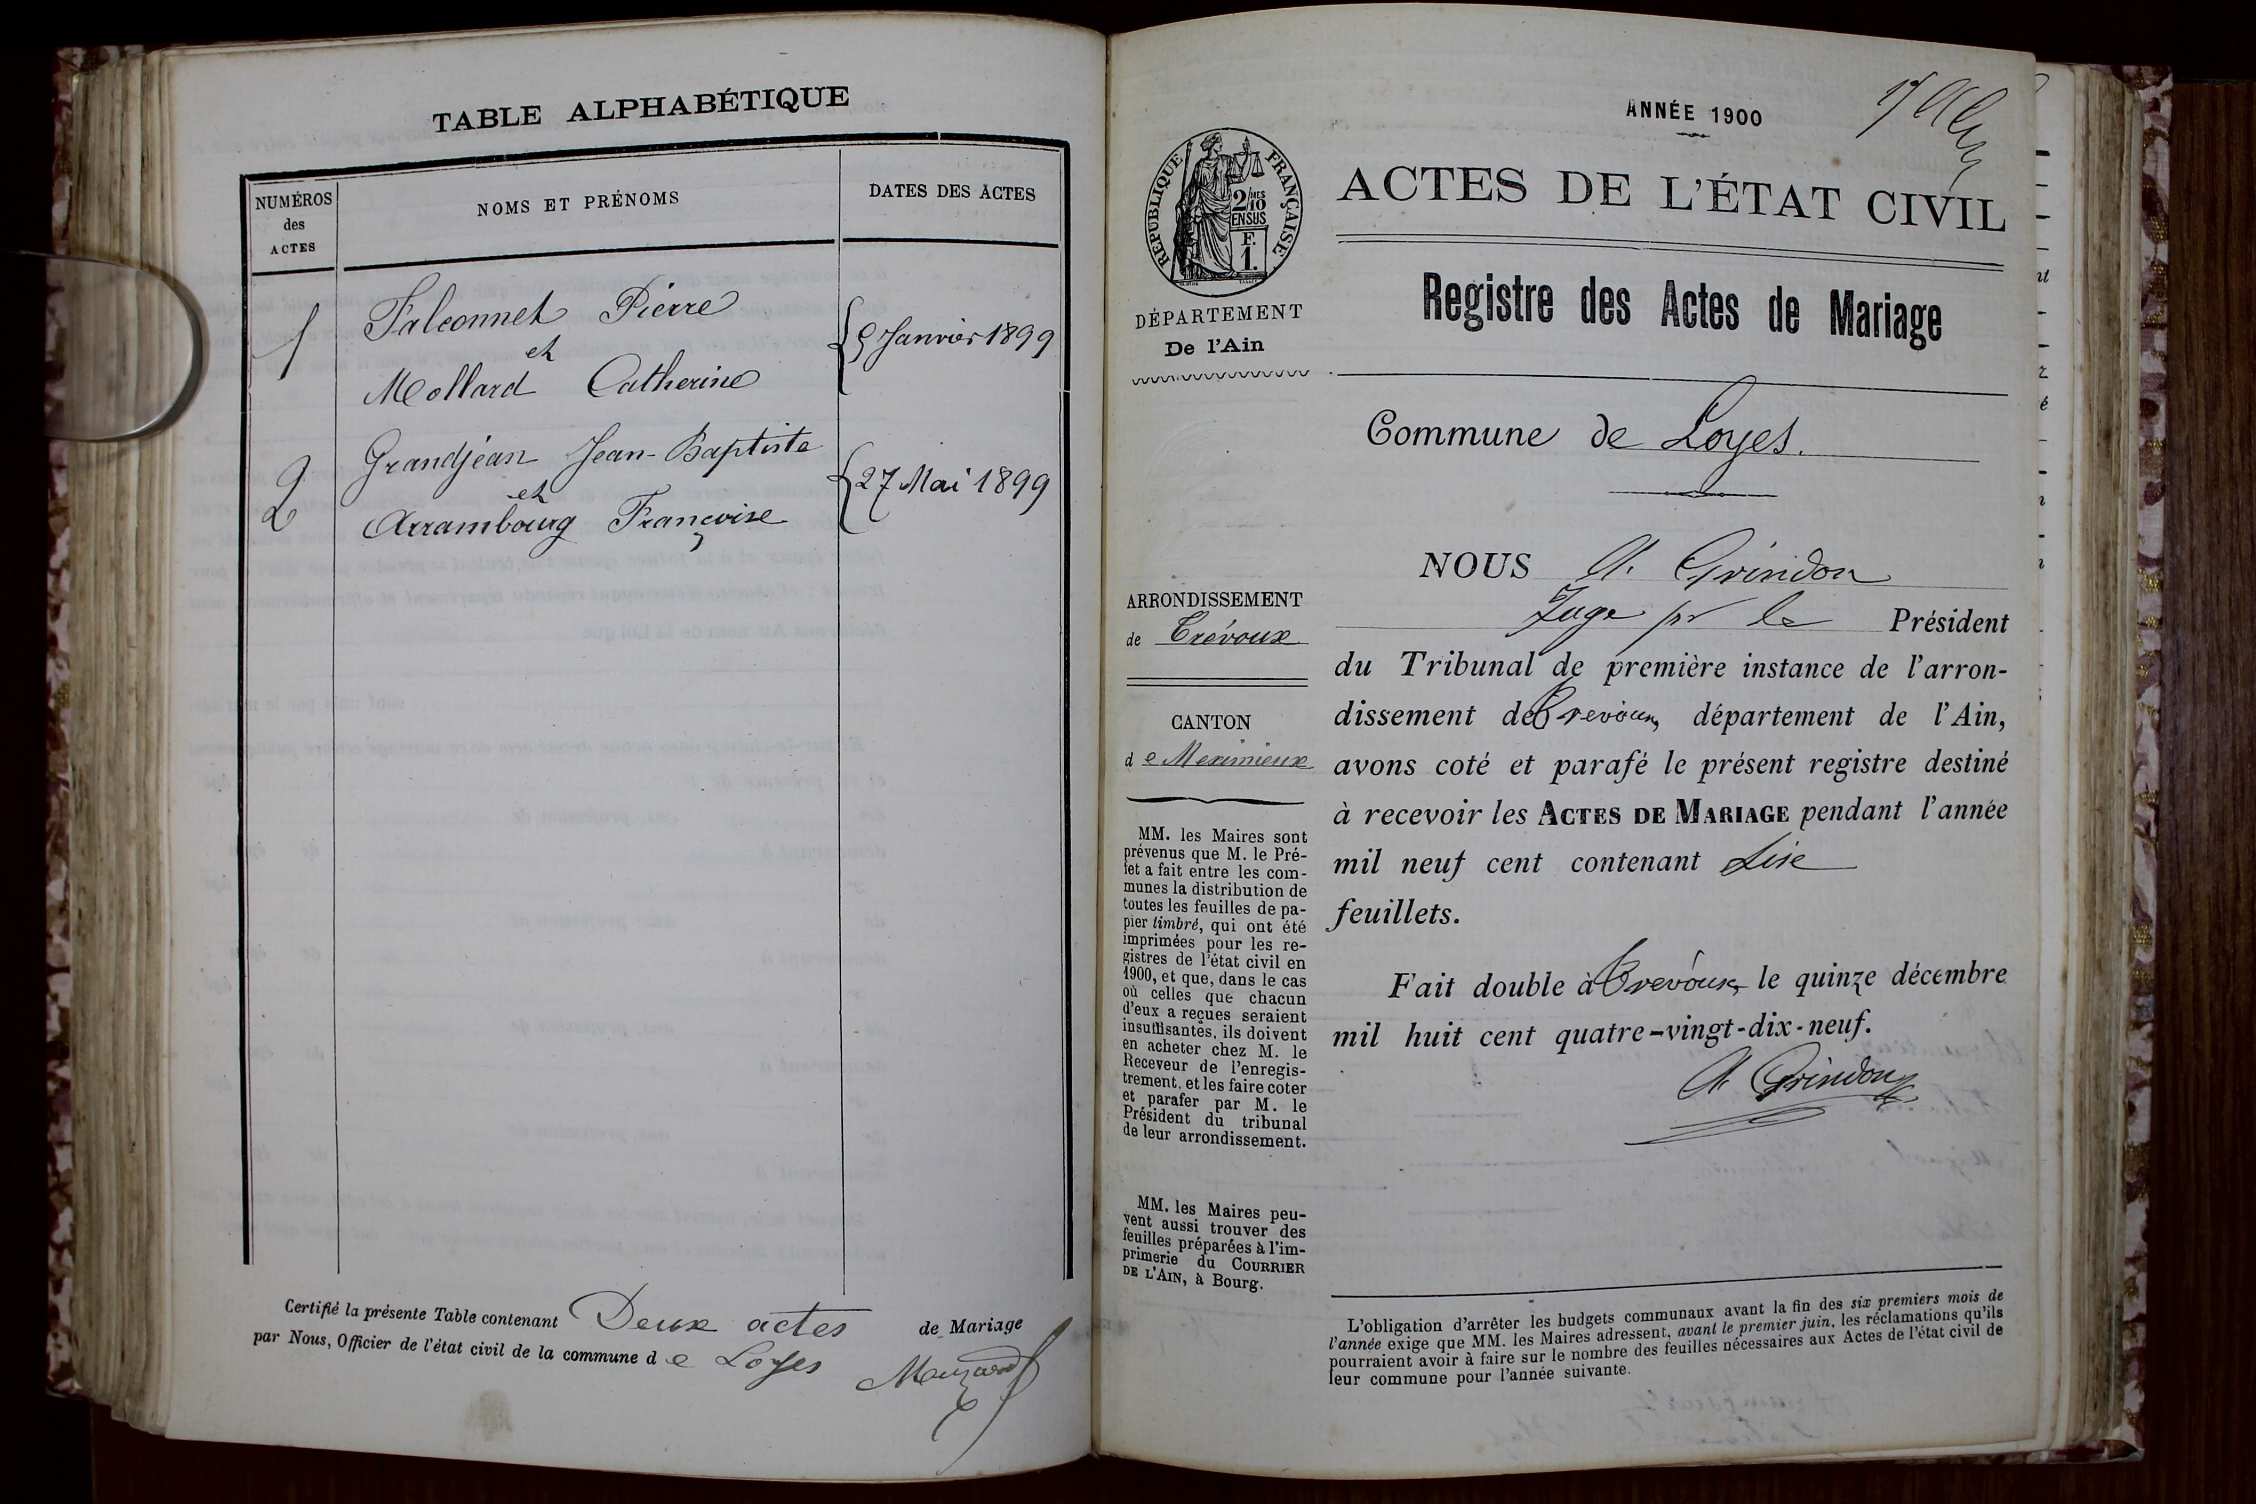 TABLE ALPHABÉTIQUE
NUMÉROS
des
ACTES
NOMS ET PRÉNOMS
DATES DES ACTES
1
Falconnet Pierre
et
Mollard Catherine
5 Janvier 1899
2
Grandjean Jean-Baptiste
et
Arrambourg Françoise
27 Mai 1899
Certifié la présente Table contenant Deux actes de Mariage
par Nous, Officier de l'état civil de la commune de Loyes
ANNÉE 1900
RÉPUBLIQUE FRANÇAISE
2/10 MES
EN SUS
F.
1.
DÉPARTEMENT
De l'Ain
ARRONDISSEMENT
de Trévoux
CANTON
de Meximieux
MM. les Maires sont
prévenus que M. le Pré-
fet a fait entre les com-
munes la distribution de
toutes les feuilles de pa-
pier timbré, qui ont été
imprimées pour les re-
gistres de l'état civil en
1900, et que, dans le cas
où celles que chacun
d'eux a reçues seraient
insuffisantes, ils doivent
en acheter chez M. le
Receveur de l'enregis-
trement, et les faire coter
et parafer par M. le
Président du tribunal
de leur arrondissement.
MM. les Maires peu-
vent aussi trouver des
feuilles préparées à l'im-
primerie du COURRIER
DE L'AIN, à Bourg.
ACTES DE L'ÉTAT CIVIL
Registre des Actes de Mariage
Commune de Loyes.
NOUS A. Grindon
Juge pr le Président
du Tribunal de première instance de l'arron-
dissement de Trevoux, département de l'Ain,
avons coté et parafé le présent registre destiné
à recevoir les ACTES DE MARIAGE pendant l'année
mil neuf cent contenant Dix
feuillets.
Fait double à Trevoux, le quinze décembre
mil huit cent quatre-vingt-dix-neuf.
A. Grindon
L'obligation d'arrêter les budgets communaux avant la fin des six premiers mois de
l'année exige que MM. les Maires adressent, avant le premier juin, les réclamations qu'ils
pourraient avoir à faire sur le nombre des feuilles nécessaires aux Actes de l'état civil de
leur commune pour l'année suivante.